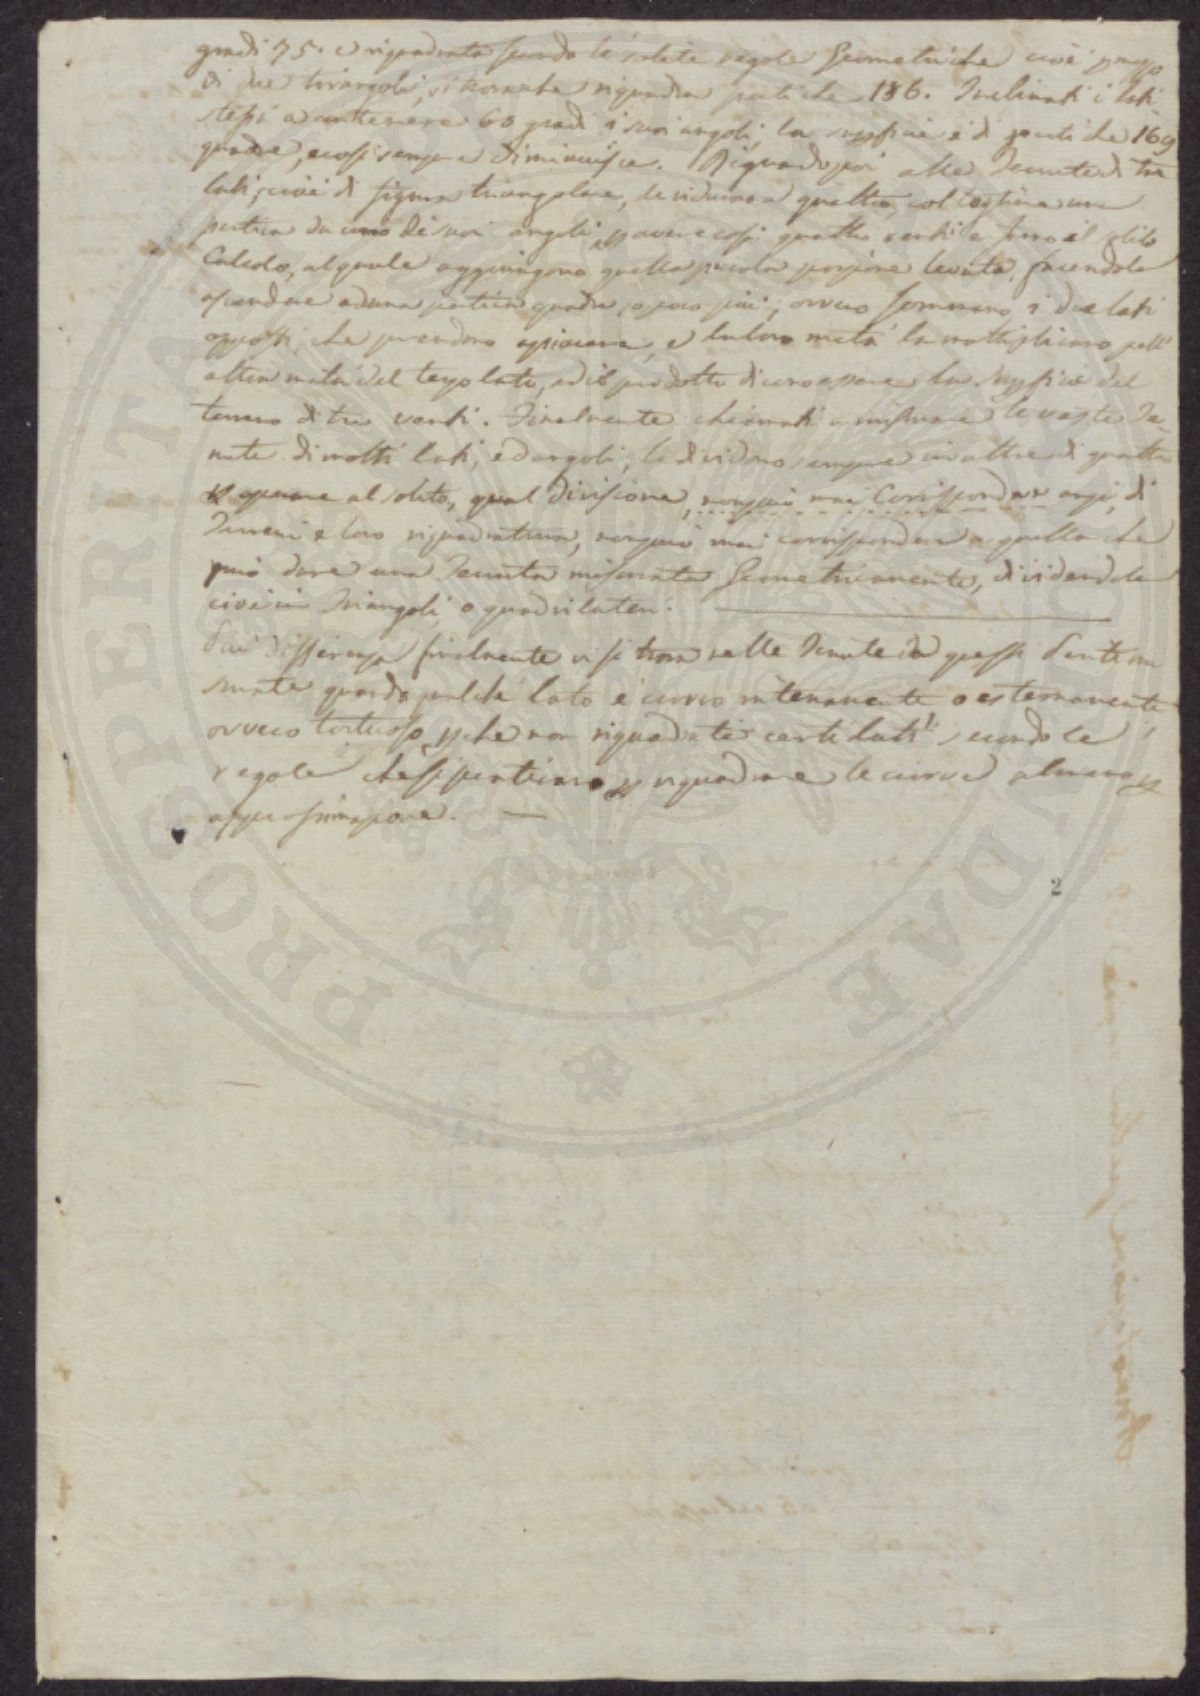 gradi 75. e riquadrata secondo le solite regole Geometriche cioè p mezzo
di due triangoli, si trovarebe riquadra pertiche 186. Inclinati i lati
stessi a contenere 60 gradi i suoi angoli, la supficie è di pertiche 169
quadre, e così sempre diminuisce. Riguardo poi alle Tenute di tre
lati, cioè di figura triangolare, le riducono a quattro, col togliere una
pertica da uno de suoi angoli, p avere così quattro venti e fanno il solito
Calcolo, al quale aggiungono quella picola porzione levata, facendola
ascendere ad una pertica quadra, o poco più; ovvero sommano i due lati
opposti, che prendono a piacere, e la loro metà la moltiplicano pell'
altra metà del terzo lato, ed il prodotto dicono essere la supficie del
terreno di tre venti. Finalmente chiamati a misurare le vaste Te-
nute di molti lati, ed angoli, le dividono sempre in altre di quattro
p operare al solito, qual divisione, non può mai corrispondere anzi, di
Terreni e loro riquadratura, non può mai corrispondere a quella che
può dare una Tenuta misurata Geometricamente, dividendola
cioè in Triangoli, o quadrilateri.
Più differenza finalmente vi si trova nelle Tenute da questi
surate quando qualche lato è curvo internamente o esternamente,
ovvero tortuoso, p che non riquadrate certi lati secondo le
regole che si praticano p riquadrare le curve almeno p
approssimazione.
2